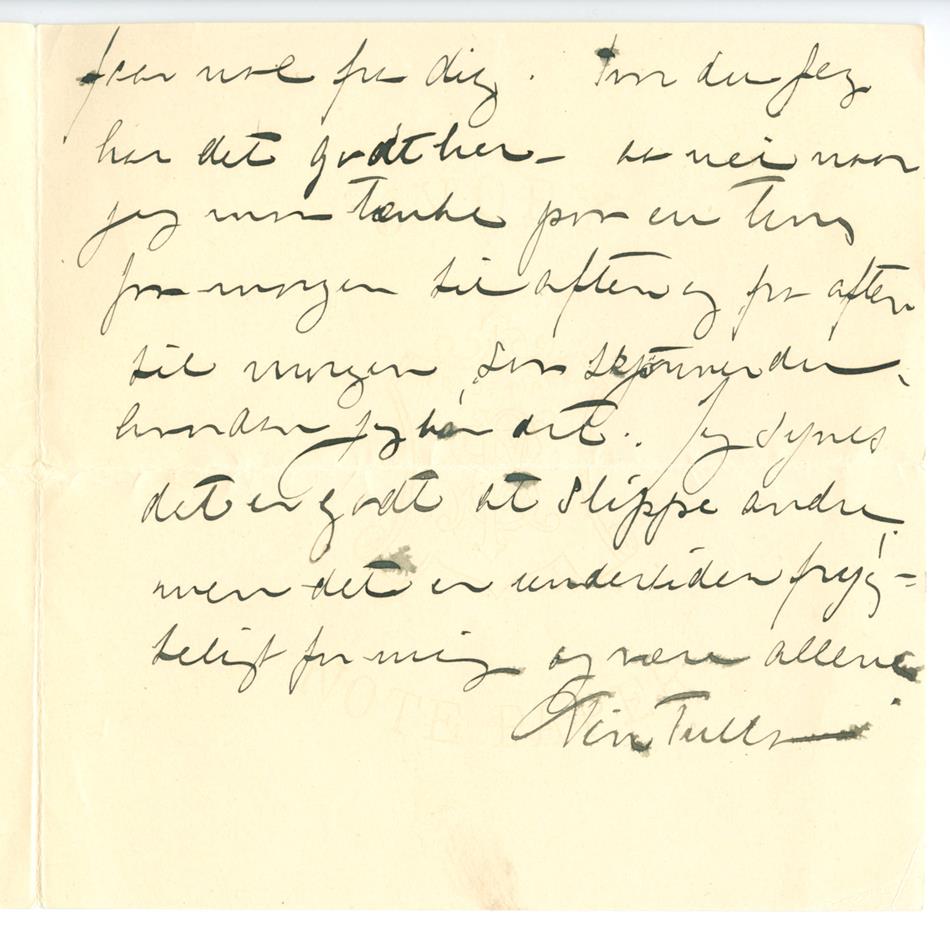 faar fra dig. Tror du Jeg
har det godt her – aa nei naar
jeg maa tænke paa en ting
fra morgen til aften og fra aften
til morgen, saa skjønner du
hvordan jeg har det. Jeg synes
det er godt at slippe andre,
men det er undertiden fryg-
teligt for mig og være allene
Din Tulla